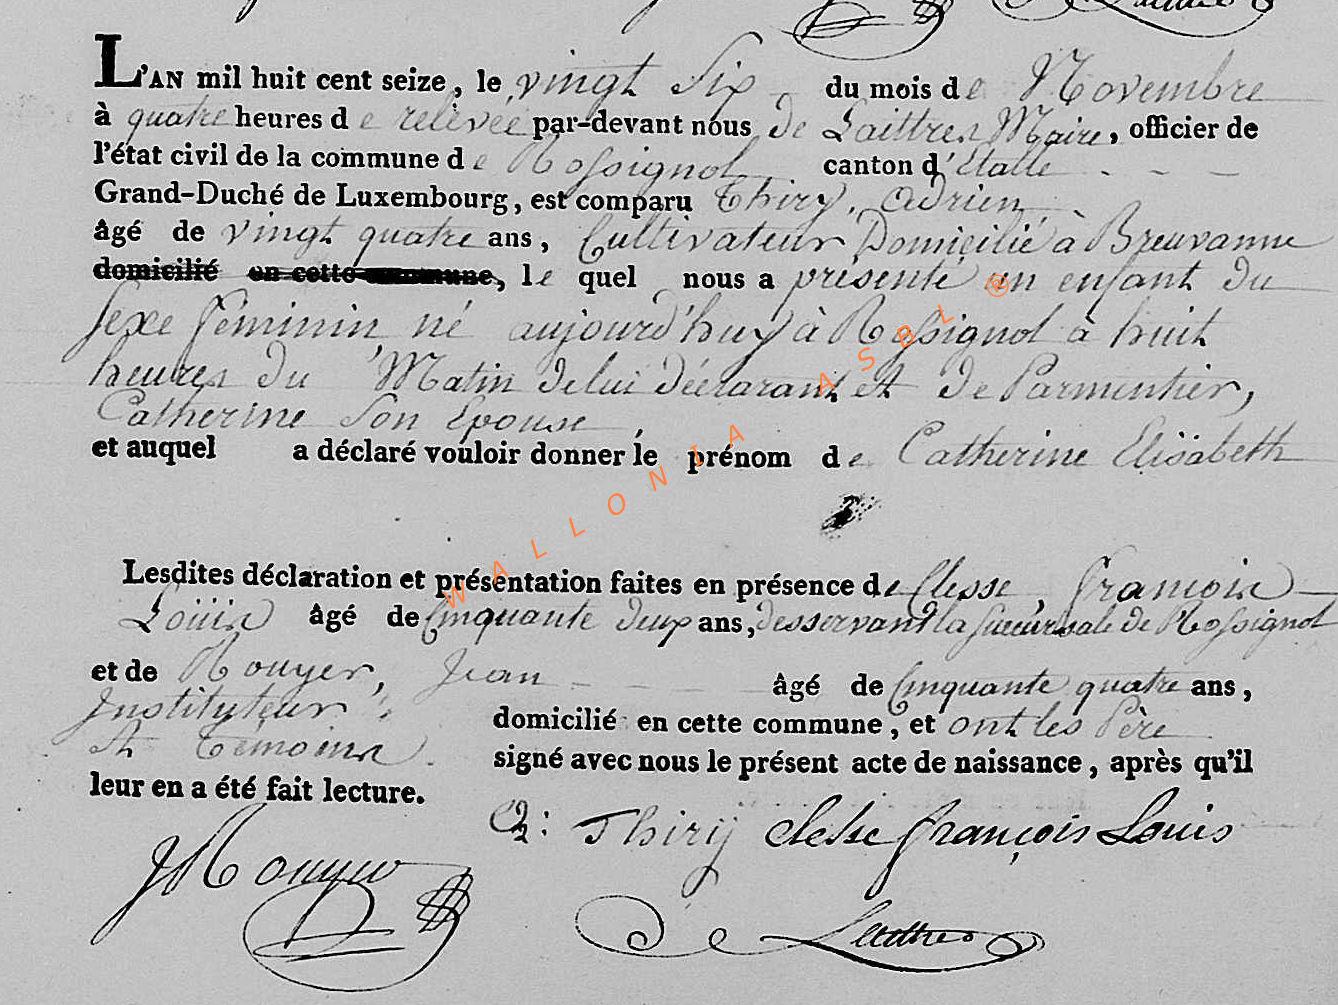 L'AN mil huit cent seize, le vingt Six du mois de Novembre
à quatre heures de relèvée par-devant nous De Laittres Maire, officier de
l'état civil de la commune de Rossignol canton d'Etalle
Grand-Duché de Luxembourg, est comparu Thiry, Adrien,
âgé de vingt quatre ans, Cultivateur Domicilié à Breuvanne
domicilié en cette commune, le quel nous a présenté un enfant du
sexe féminin, né aujourd'huy à Rossignol à huit
heures du Matin de lui déclarant et de Parmentier,
Catherine Son Epouse,
et auquel a déclaré vouloir donner le prénom de Catherine Elisabeth
Lesdites déclaration et présentation faites en présence de Clesse, François
Louis âgé de Cinquante deux ans, desservant la succursale de Rossignol
et de Rouyer, Jean âgé de Cinquante quatre ans,
Instituteur, domicilié en cette commune, et ont les Père
et témoins signé avec nous le présent acte de naissance, après qu'il
leur en a été fait lecture.
Thirÿ Clesse françois Louis
JRouyer
De Laittres
WALLONIA ASBL ®